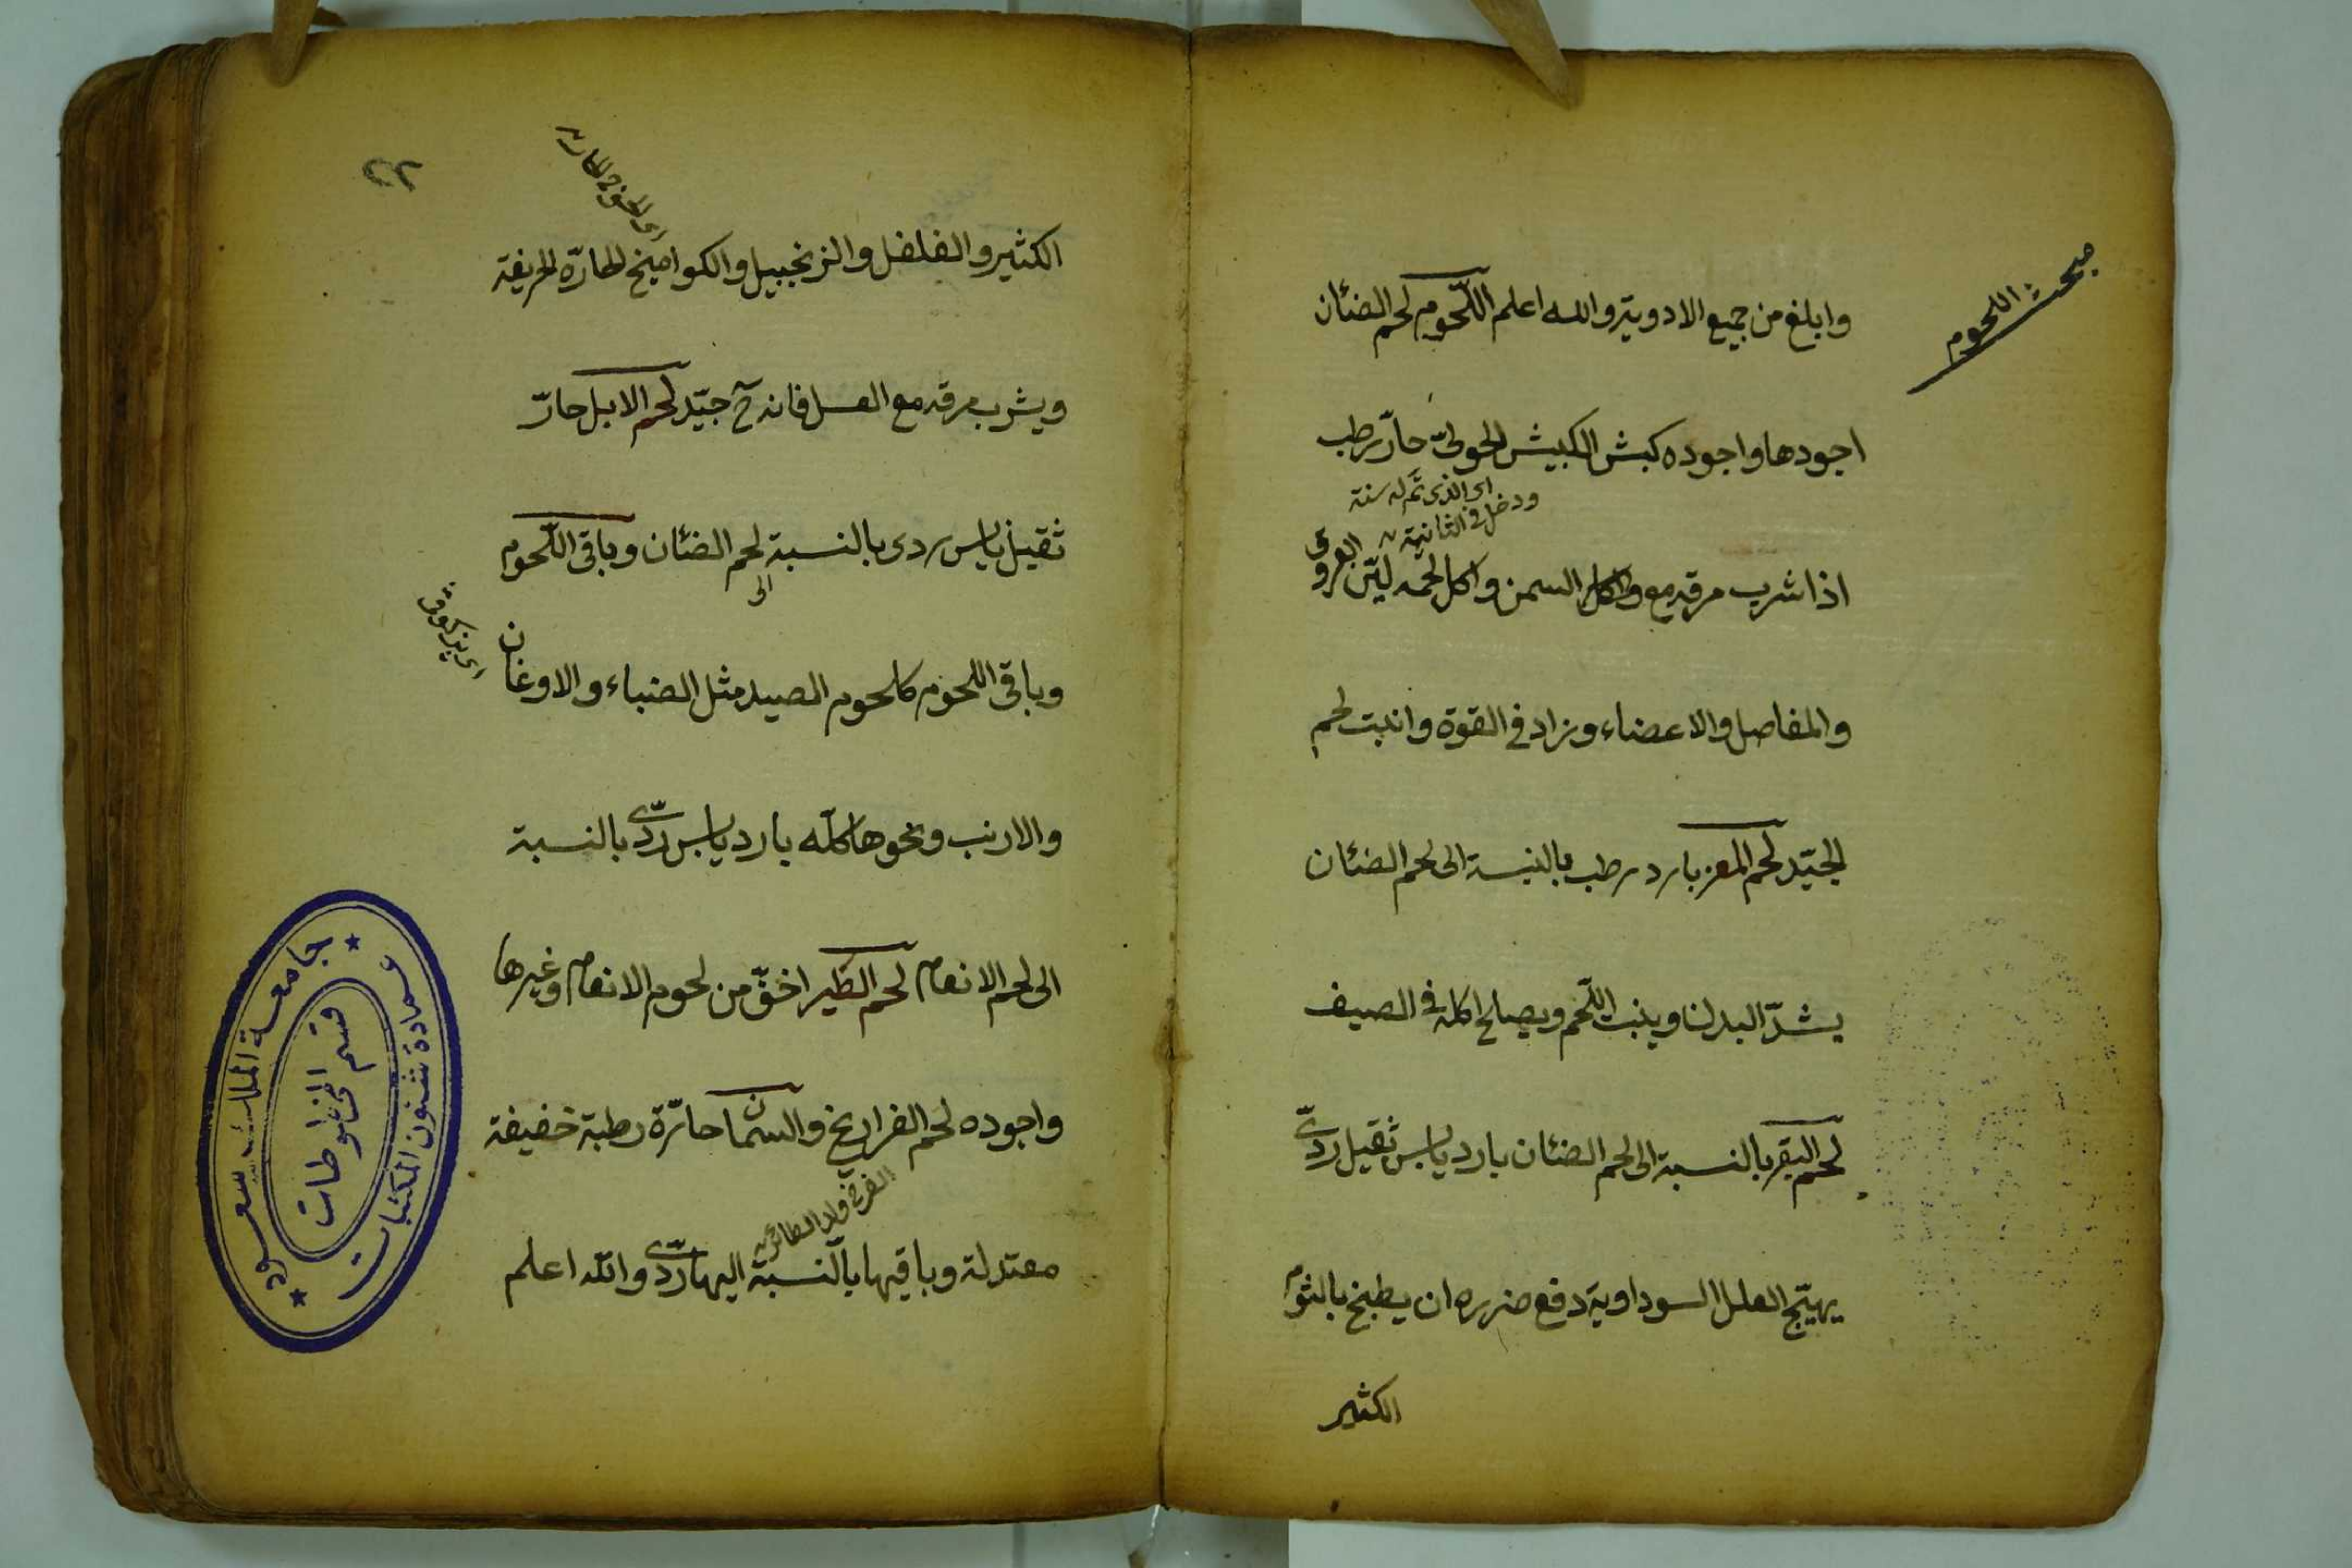 مبحث اللحوم
وابلغ من جميع الادوية والله اعلم اللّحوم لحم الضئان
اجودها واجوده كبش الكبيش الحولىّ حارّ رطب
اى الذى تم له سنة
ودخل فى الثانية
اذا شرب مرقه مع واكل السمن واكل لحمه ليّن العروق
والمفاصل والاعضاء وزاد فى القوة وانبت لحم
الجيّد لحم المعز بارد رطب بالنسبة الى لحم الضئان
يشدّ البدن وينبت اللّحم ويصلح اكله فى الصيف
لحم البقر بالنسبة الى لحم الضئان بارد يابس ثقيل ردىّ
يهيّج العلل السوداوية دفع ضرره ان يطبخ بالثوم
الكثير
٢٢
الكثير والفلفل والزنجبيل والكواميخ الحارّه الحريفة
ويشرب مرقه مع العسل فانه ح جيّد لحم الابل حارّ
ثقيل يابس ردى بالنسبة الى لحم الضئان وباقى اللّحوم
وباقى اللحوم كلحوم الصيد مثل الضباء والاوغان
والارنب ونحوها كلّه بارد يابس ردىّ بالنسبة
الى لحم الانعام لحم الطير اخفّ من لحوم الانعام وغيرها
واجوده لحم الفراريخ والسمان حارّة رطبة خفيفة
الفرخ ولد الطائر
معتدلة وباقيها بالنسبة اليها ردىّ والله اعلم
جامعة الملك سعود
قسم المخطوطات
عمادة شئون المكتبات